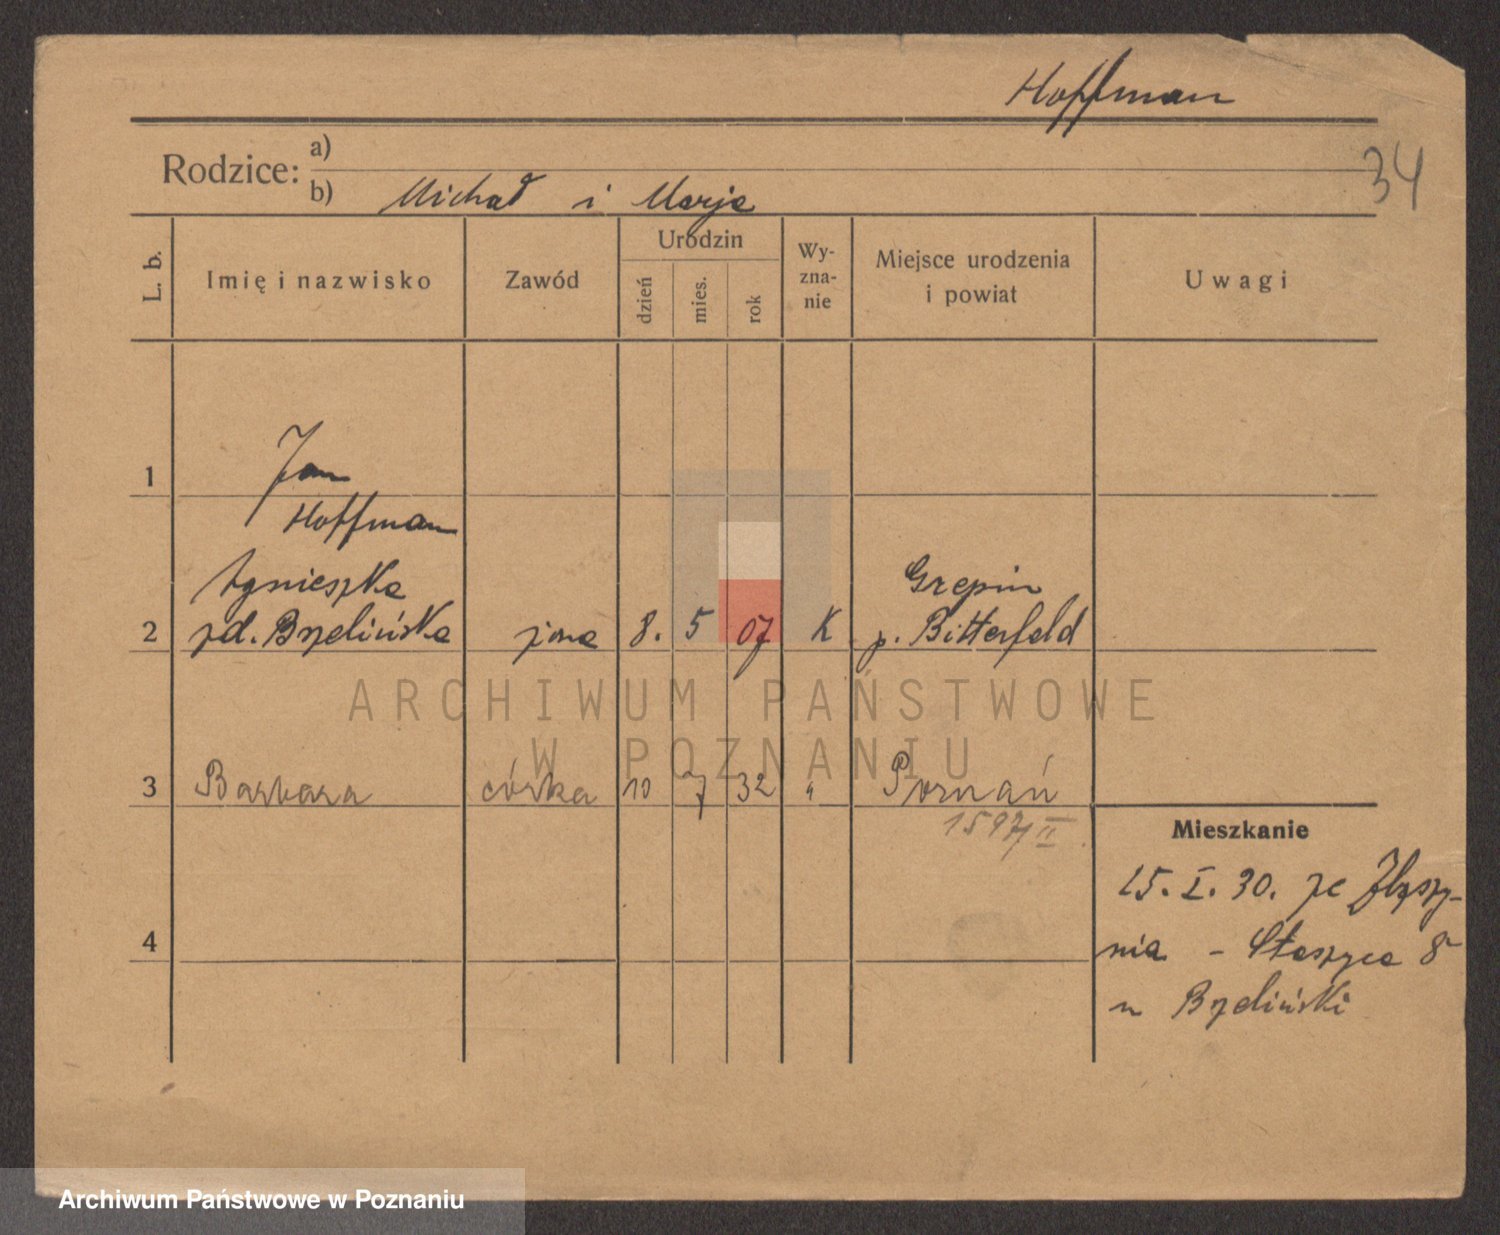 Hoffman
34
Rodzice: a)
b) Michał i Marja
L. b.
Imię i nazwisko
Zawód
Urodzin
dzień
mies.
rok
Wy-
zna-
nie
Miejsce urodzenia
i powiat
Uwagi
1
Jan
Hoffman
Agnieszka
2 zd. Bzdelińska żona 8. 5 07 K
Grepin
p. Bitterfeld
ARCHIWUM PAŃSTWOWE
W POZNANIU
3 Barbara córka 10 7 32 " Poznań
II
Mieszkanie
15. I. 30. ze Zbąszy-
4
nia - Staszyca 8
u
Archiwum Państwowe w Poznaniu